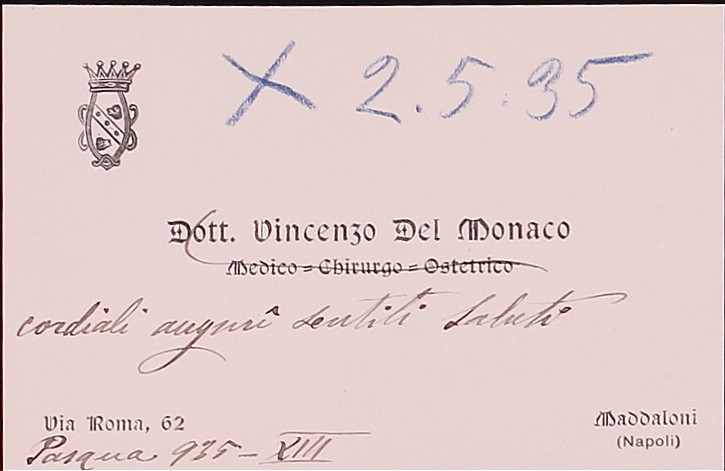 X 2.5.35
Dott. Vincenzo Del Monaco
Medico = Chirurgo = Ostetrico
cordiali auguri sentiti saluti
Via Roma, 62
Maddaloni
(Napoli)
Pasqua 935 - XIII